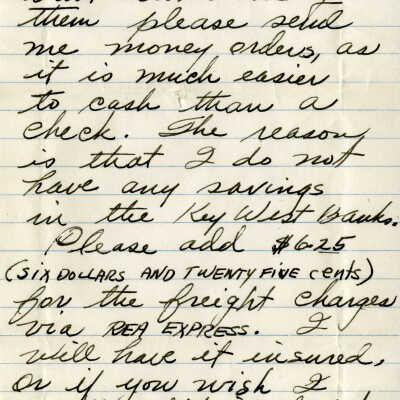 them please send
me money orders, as
it is much easier
to cash than a
check. The reason
is that I do not
have any savings
in the Key West Banks.
Please add $6.25
(SIX DOLLARS AND TWENTY FIVE cents)
for the freight charges
via REA EXPRESS. I
will have it insured,
Or if you wish I